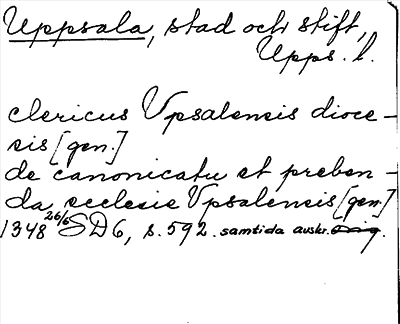 Uppsala, stad och stift,
Upps. l.
clericus Vpsalensis dioce-
sis [gen.]
de canonicatu et preben-
da ecclesie Vpsalensis [gen.]
1348 26/6 SD6, s. 592. samtida avskr.